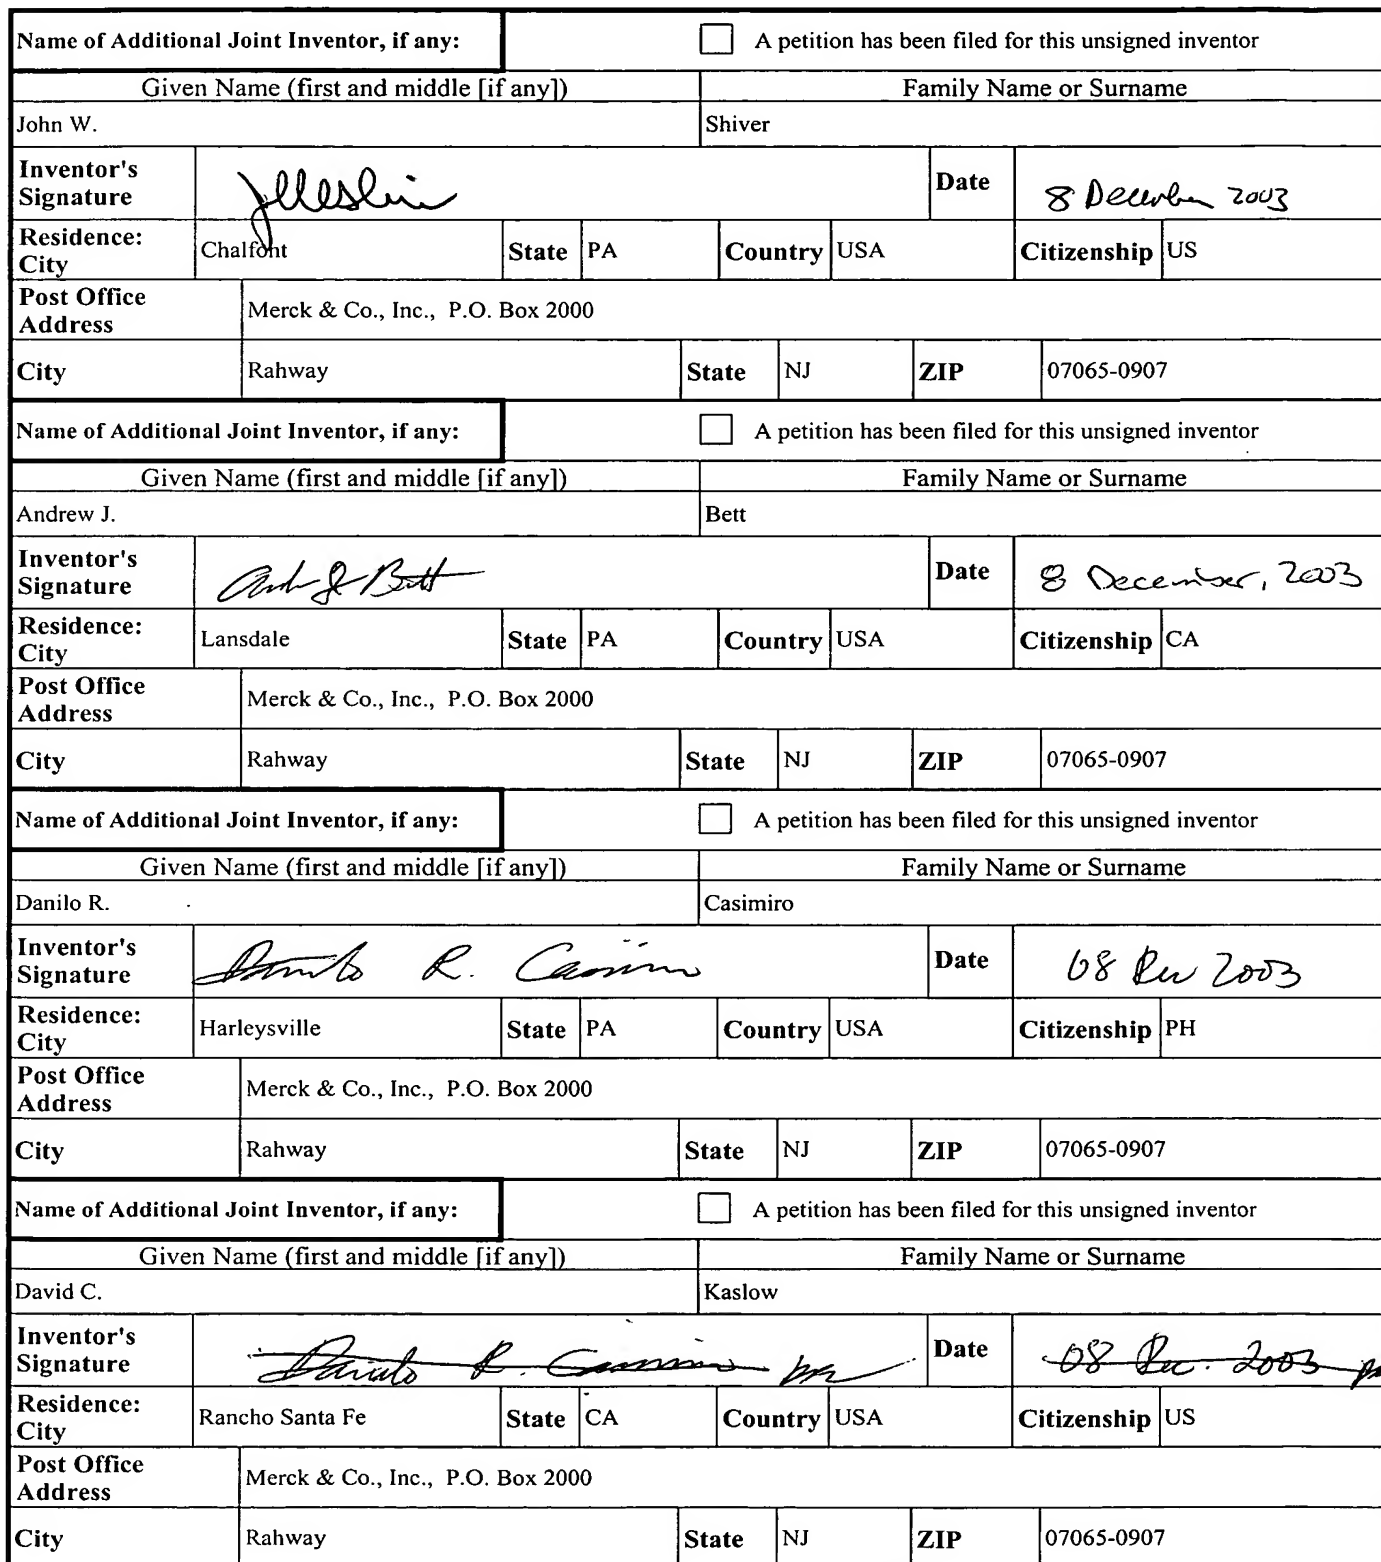 Name of Additional Joint Inventor, if any: A petition has been filed for this unsigned inventor
Given Name (first and middle [if any]) Family Name or Surname
John W. Shiver
Inventor's Signature Date 8 December 2003
Residence: City Chalfont State PA Country USA Citizenship US
Post Office Address Merck & Co., Inc., P.O. Box 2000
City Rahway State NJ ZIP 07065-0907
Name of Additional Joint Inventor, if any: A petition has been filed for this unsigned inventor
Given Name (first and middle [if any]) Family Name or Surname
Andrew J. Bett
Inventor's Signature Andrew J Bett Date 8 December, 2003
Residence: City Lansdale State PA Country USA Citizenship CA
Post Office Address Merck & Co., Inc., P.O. Box 2000
City Rahway State NJ ZIP 07065-0907
Name of Additional Joint Inventor, if any: A petition has been filed for this unsigned inventor
Given Name (first and middle [if any]) Family Name or Surname
Danilo R. Casimiro
Inventor's Signature Danilo R. Casimiro Date 08 Dec 2003
Residence: City Harleysville State PA Country USA Citizenship PH
Post Office Address Merck & Co., Inc., P.O. Box 2000
City Rahway State NJ ZIP 07065-0907
Name of Additional Joint Inventor, if any: A petition has been filed for this unsigned inventor
Given Name (first and middle [if any]) Family Name or Surname
David C. Kaslow
Inventor's Signature Danilo R. Casimiro Date 08 Dec. 2003
Residence: City Rancho Santa Fe State CA Country USA Citizenship US
Post Office Address Merck & Co., Inc., P.O. Box 2000
City Rahway State NJ ZIP 07065-0907